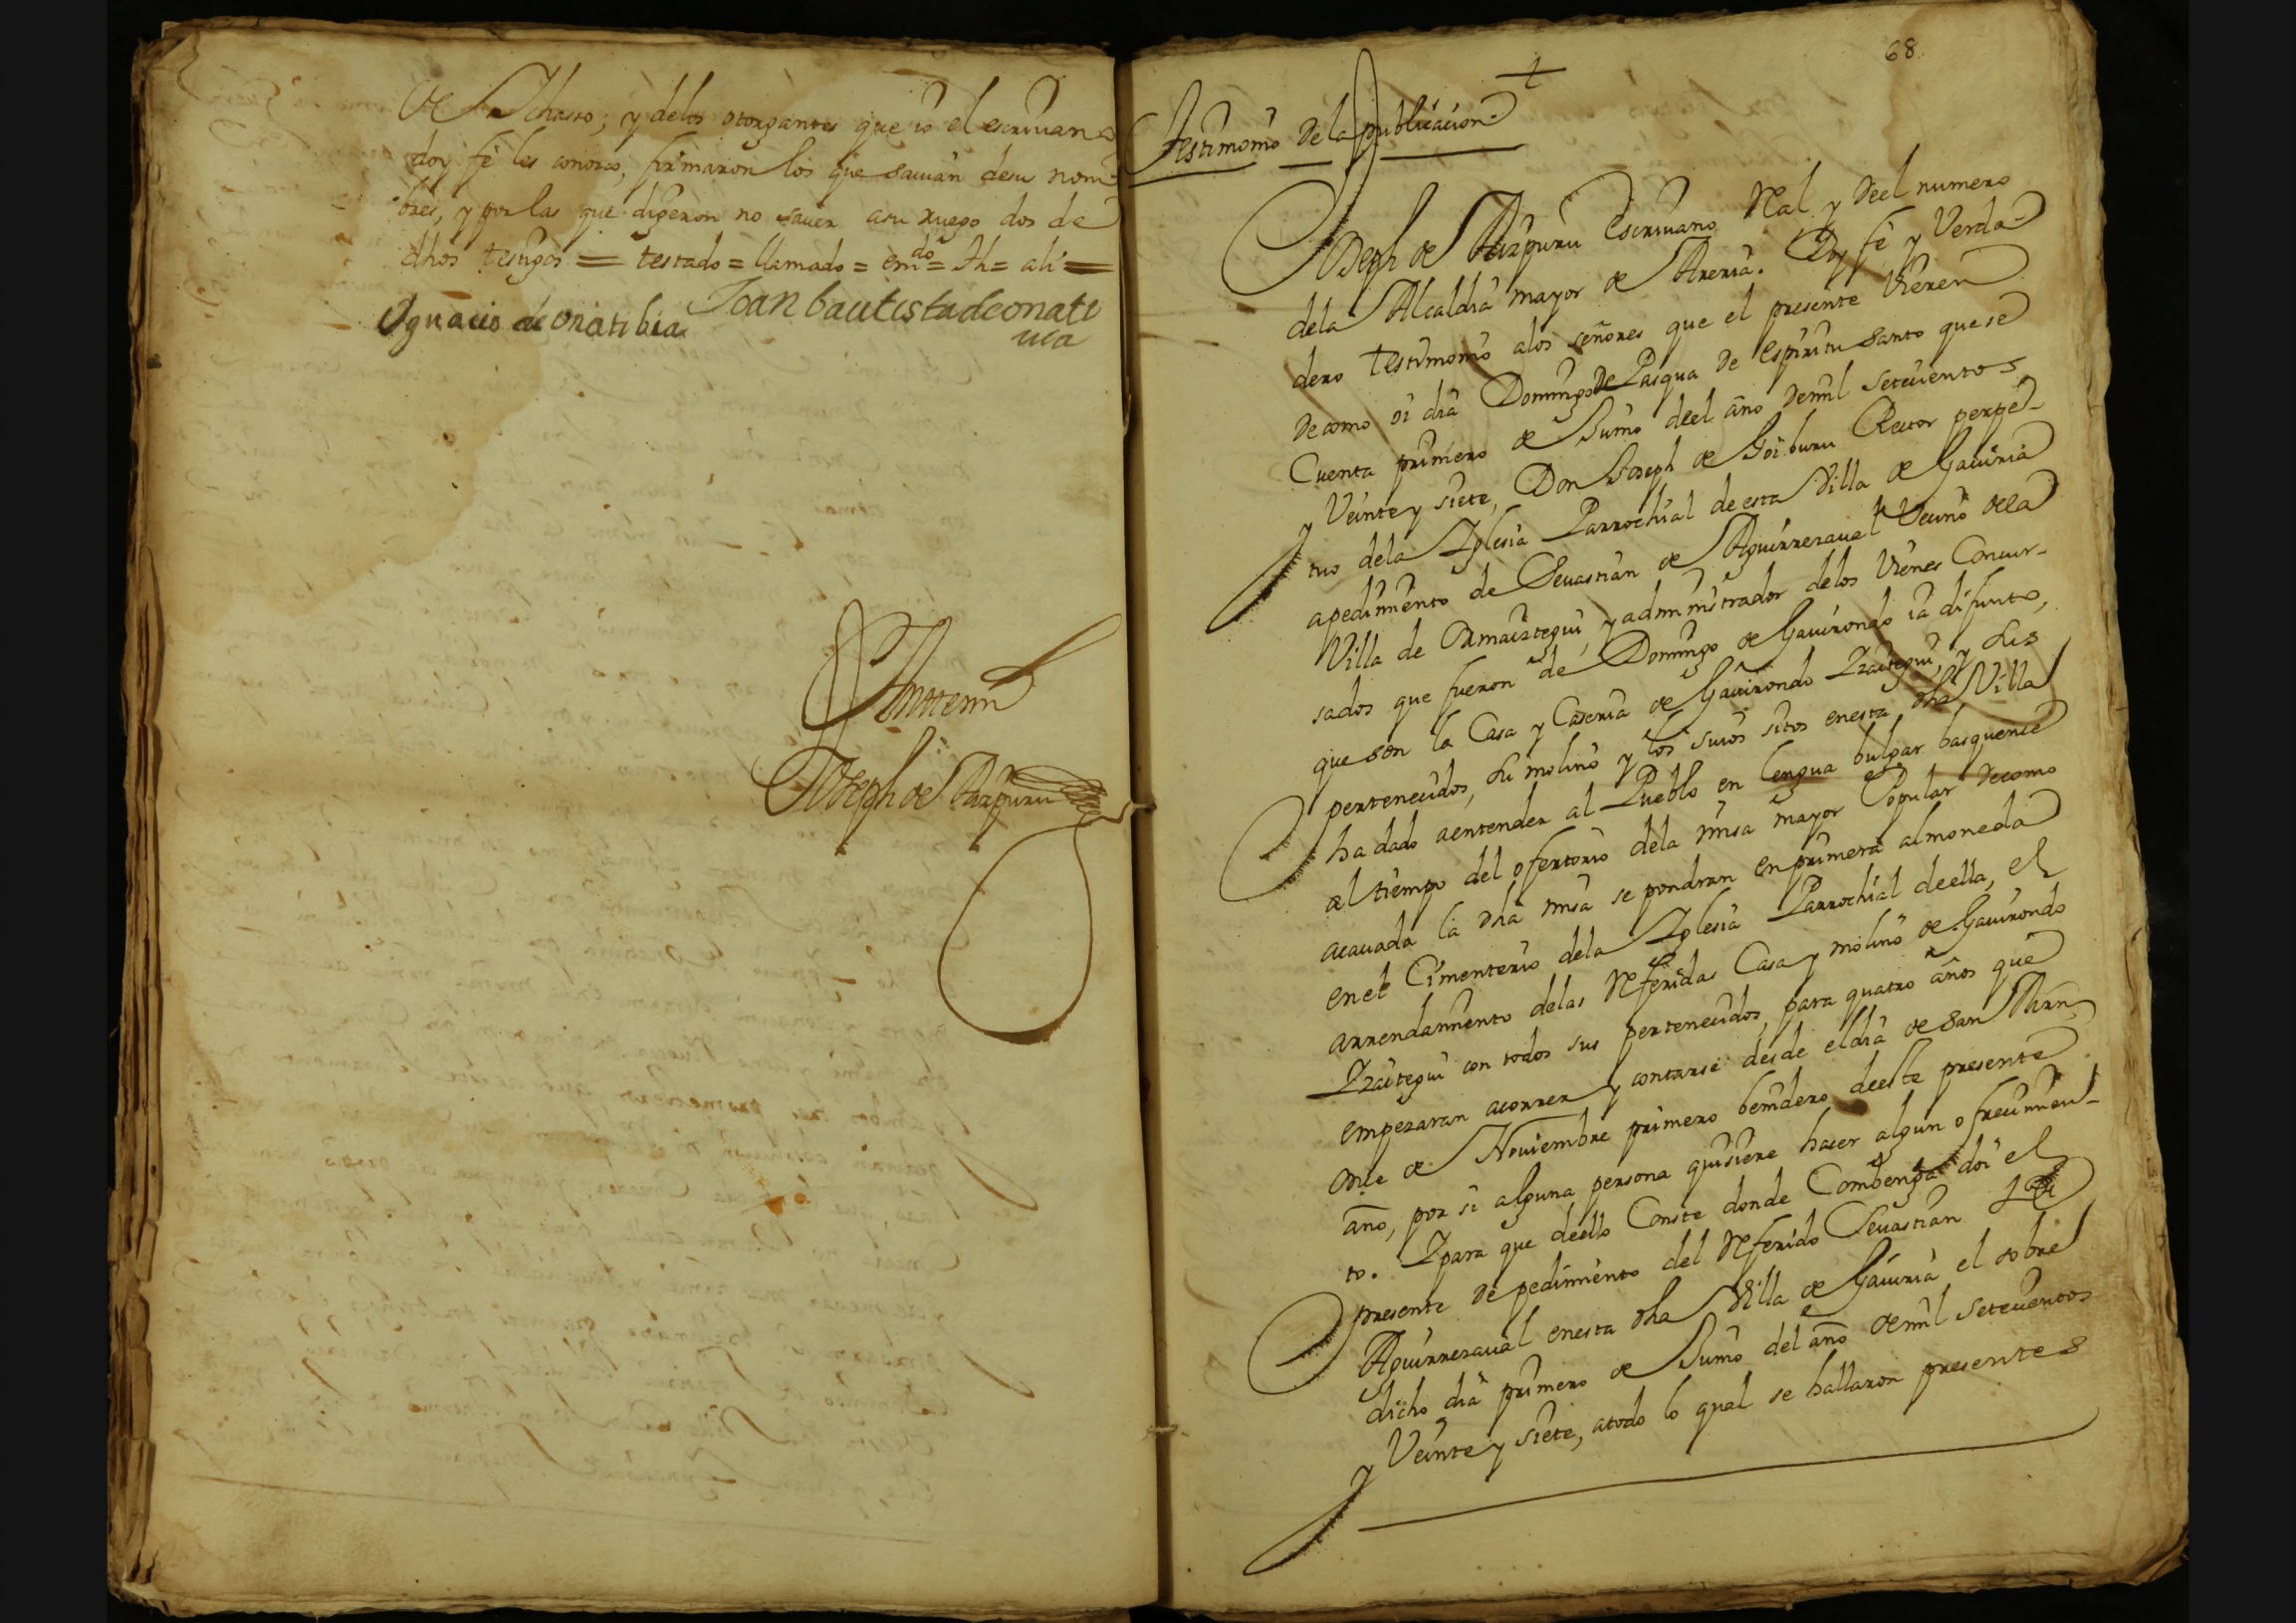 de Ychasso; y delos otorgantes que io el escrivano
doy fè les conozco, firmaron los que savian de su nom-
bres, y por las que digeron no saver asu ruego dos de
dhos testigos = testado = llamado = em.do = Ih = ali =
Ignacio de onatibia Joan bautista de onati
via
Ante mi
Joseph de Aizpuru
68
Testimonio de la publicacion
Joseph de Aizpuru Escrivano Real y deel numero
dela Alcaldia mayor de Areria. Doy fè y Verda-
dero testimonio alos señores que el presente Vieren
de como oi dia Domingo de Pasqua de Espiritu Santo que se
Cuenta primero de Junio deel año demil setecientos
y Veinte y siete, Don Joseph de Goiburu Rector perpe-
tuo dela Yglesia Parrochial de esta Villa de Gaviria
apedimiento de Sevastian de Aguirrezaval Vecino dela
Villa de Ormaiztegui, y administrador delos Vienes Concur-
sados que fueron de Domingo de Gavirondo ia difunto,
que son la Casa y Caseria de Gavirondo Yzaitegui, y sus
pertenecidos, su molino y los suios sitos enesta dha Villa
ha dado aentender al Pueblo en lengua bulgar basquence
al tiempo del ofertorio dela misa mayor Popular de como
acavada la dha misa se pondran en primera almoneda
enel Cimenterio dela Yglesia Parrochial deella, el
arrendamiento delas Referidas Casa y molino de Gavirondo
Yzaitegui con todos sus pertenecidos, para quatro años que
empezaran acorrer y contarse desde el dia de San Marn
onze de Noviembre primero benidero deeste presente
año, por si alguna persona quisiere hazer algun ofrecimien-
to. Y para que deello Conste donde Combenga doi el
presente de pedimiento del Referido Sevastian de
Aguirrezaval enesta dha Villa de Gaviria el sobre
dicho dia primero de Junio del año demil setecientos
y Veinte y siete, atodo lo qual se hallaron presentes